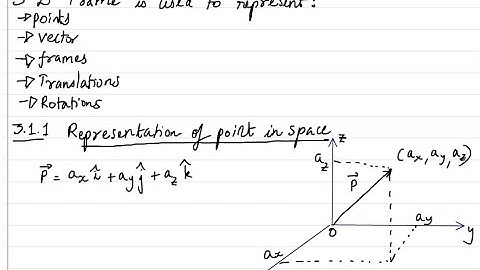 3-D Frame is used to represent:
→ points
→ vector
→ frames
→ Translations
→ Rotations
3.1.1 Representation of point in space
z
a_z
(a_x, a_y, a_z)
P⃗ = a_x î + a_y ĵ + a_z k̂
P⃗
a_y
0
y
a_x